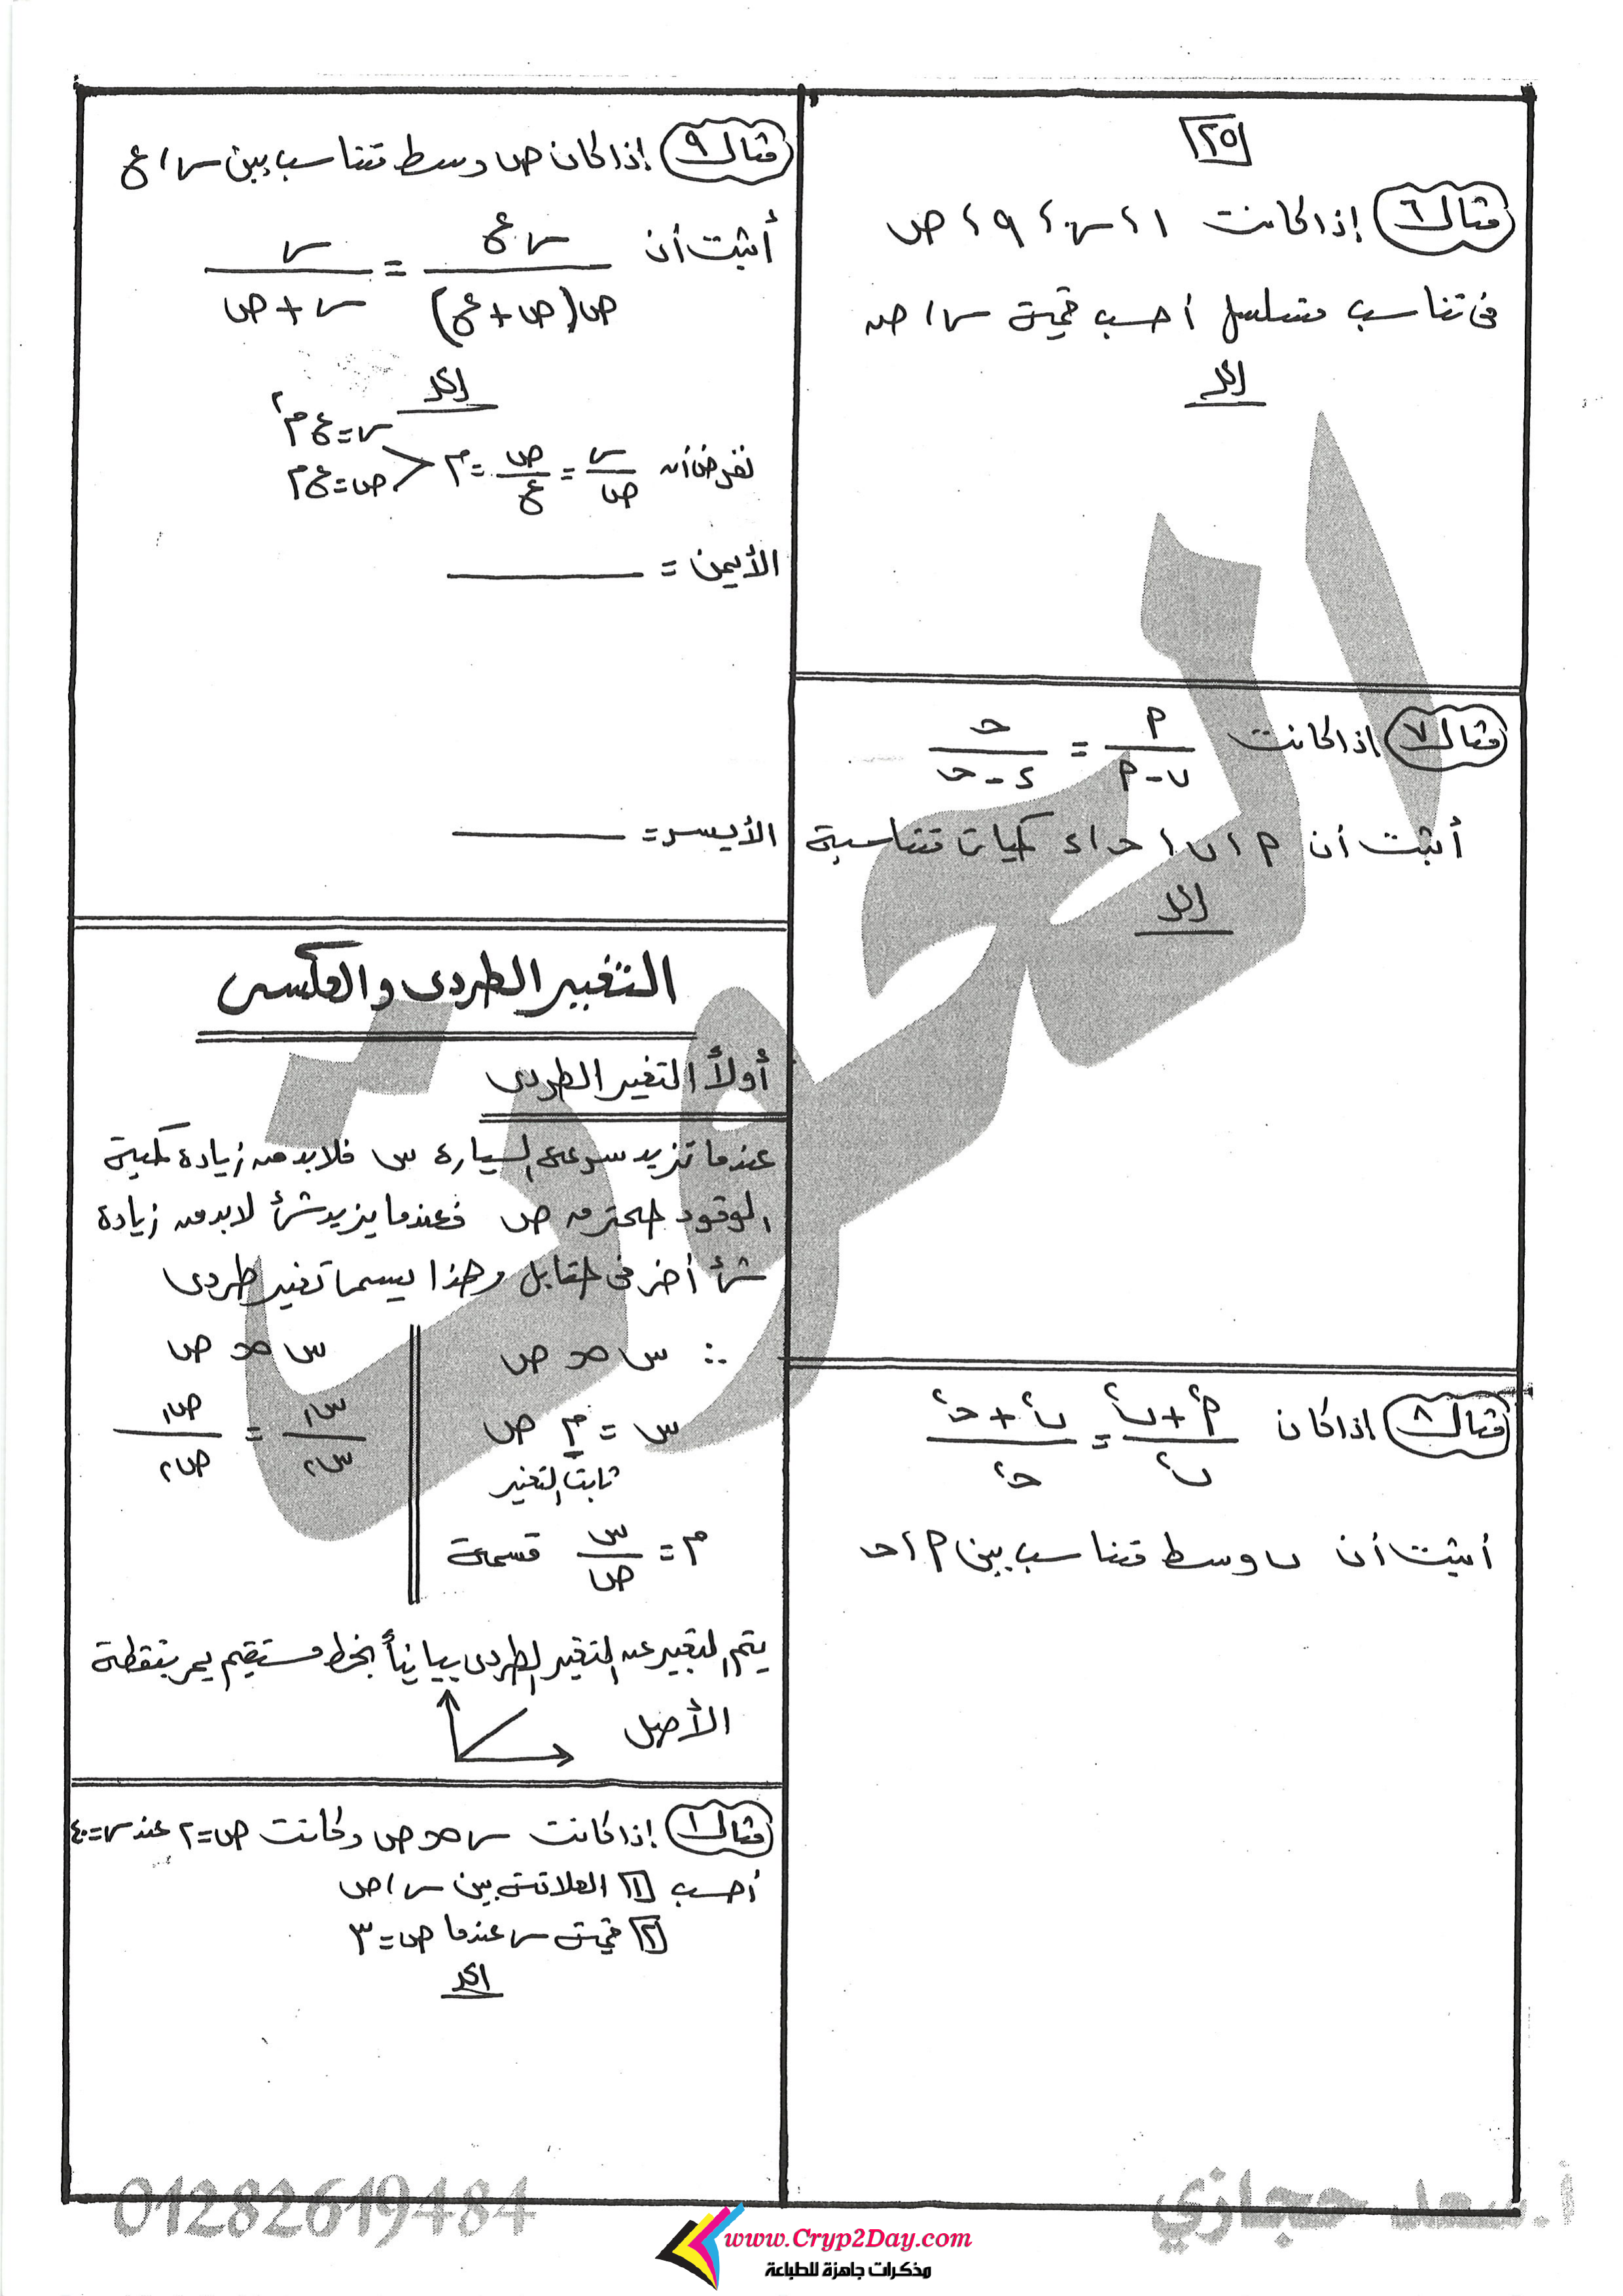 ٢٥
مثال ٦ إذا كانت ١ ، س ، ٩ ، ص
فى تناسب متسلسل أحسب قيمة س ، ص
الحل
مثال ٧ اذا كانت م / (ب - م) = ح / (٤ - ح)
أثبت أن م ، ب ، ح ، ٤ كميات متناسبة
الحل
مثال ٨ اذا كان (م٢ + ب٢) / ب٢ = (ب٢ + ح٢) / ح٢
أثبت أن ب وسط متناسب بين م ، ح
مثال ٩ إذا كان ص وسط متناسب بين س ، ع
أثبت أن س ع / ص(ص + ع) = س / (س + ص)
الحل
نفرض أن س / ص = ص / ع = م
س = ع م٢
ص = ع م
الأيمن =
الأيسر =
التغيير الطردى والعكسى
أولاً التغير الطردى
عندما تزيد سرعة السيارة س فلابد من زيادة كمية
الوقود المحترمه ص فعندما يزيد شئ لابد من زيادة
شئ أخر فى المقابل وهذا يسما تغير طردى
∴ س ∝ ص
س = م ص
ثابت التغير
م = س / ص قسمة
س ∝ ص
س١ / س٢ = ص١ / ص٢
يتم التعبير عن التغير الطردى بيانياً بخط مستقيم يمر بنقطة
الأصل
مثال ١ إذا كانت س ∝ ص وكانت ص = ٢ عند س = ٤٠
أحسب ١ العلاقة بين س ، ص
٢ قيمة س عندما ص = ٣
الحل
01282619484
أ.سعد حجازي
www.Cryp2Day.com
مذكرات جاهزة للطباعة